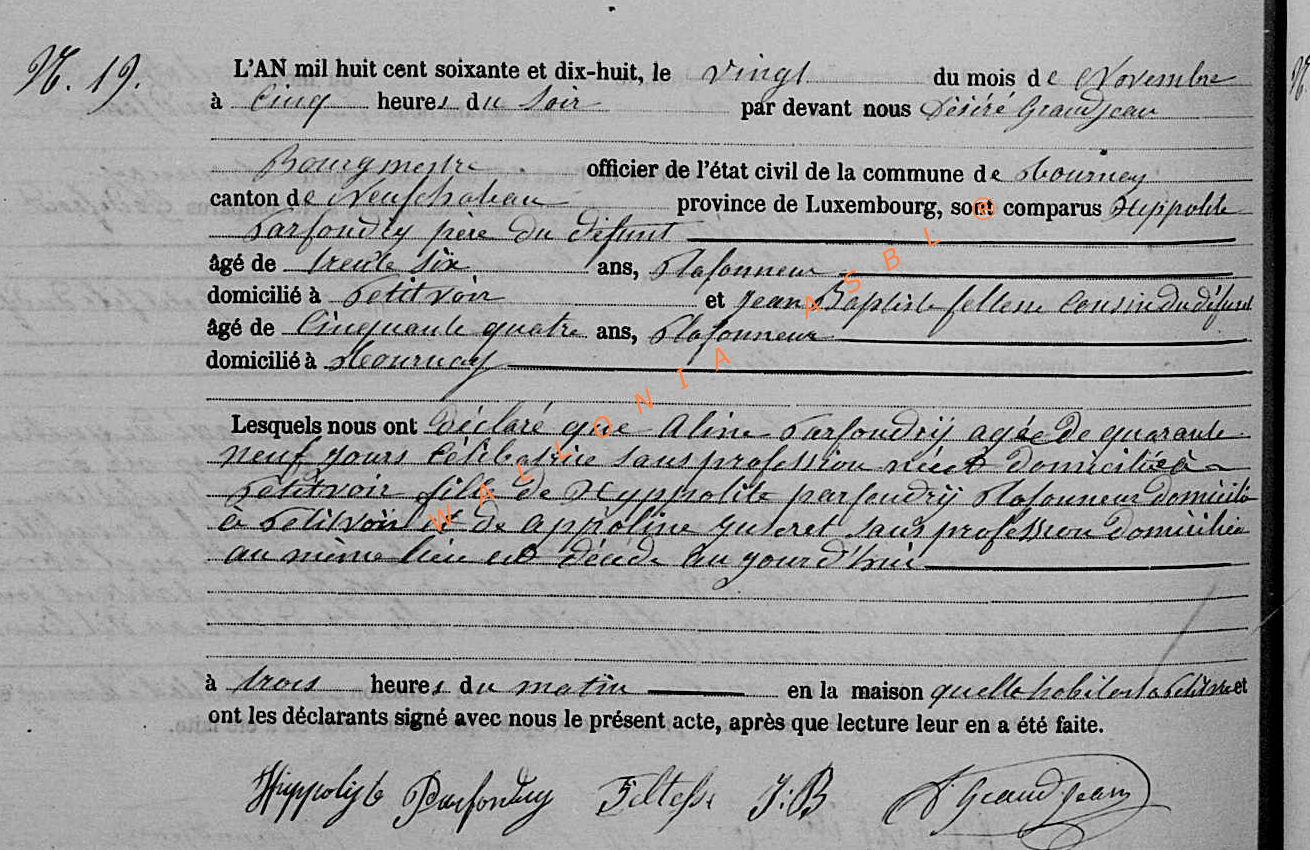 N. 19.
L'AN mil huit cent soixante et dix-huit, le vingt du mois de Novembre
à Cinq heures du Soir par devant nous Désiré Grandjean
Bourgmestre officier de l'état civil de la commune de Tournay
canton de Neufchateau province de Luxembourg, sont comparus Hyppolite
Parfondry père du défunt
âgé de trente six ans, Plafonneur
domicilié à Petitvoir et Jean Baptiste fellesse Cousin du défunt
âgé de Cinquante quatre ans, Plafonneur
domicilié à Tournay
Lesquels nous ont déclaré que Aline Parfondrÿ agée de quarante
neuf jours Célibatrice sans profession née et domiciliée à
Petitvoir fille de Hyppolite parfondrÿ Plafonneur domicilié
à Petitvoir et de appoline sans profession domiciliée
au même lieu est décédé au jourd'hui
à trois heures du matin en la maison quelle habitent à Petitvoir et
ont les déclarants signé avec nous le présent acte, après que lecture leur en a été faite.
Hippolyte Parfondry Feltesse J. B D Grandjean
WALLONIA ASBL ®